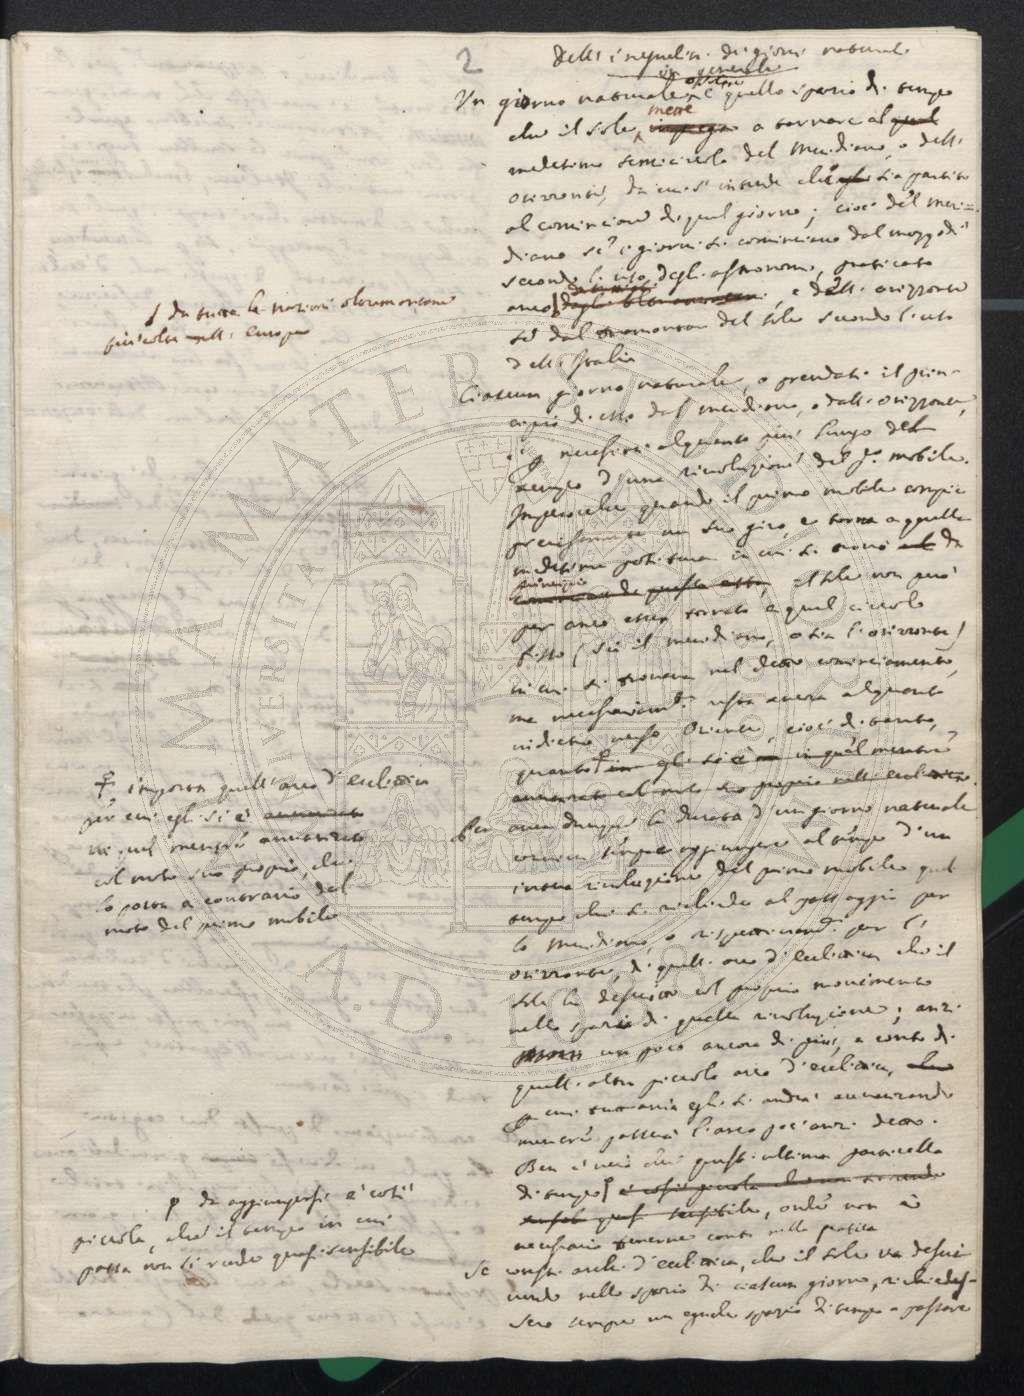 2
Dell'inequalità de giorni naturali
in generale
Un giorno naturale è quello spazio di tempo
che il sole mette impiega a tornare al quel
medesimo semicircolo del Meridiano, o dell'
Orizzonte, da cui s'intende che sia partito
al cominciare di quel giorno; cioè del meri=
diano se i giorni si cominciano dal mezzodì
secondo l'uso degli astronomi, praticato
anco, e dell'orizzonte
se dal tramontar del sole secondo l'uso
dell'Italia
ƒ da tutte le nazioni oltramontane
più colte dell'Europa
Ciascun giorno naturale, o prendasi il prin-
cipio di esso dal meridiano, o dall'orizzonte,
è necessario alquanto più lungo del
tempo d'una rivoluzione del p.º mobile.
Imperocchè quando il primo mobile compie
precisamente un suo giro, e torna a quella
medesima positura in cui si trovò al da
principio cominciar di questo esso, il sole non però
per anco esser tornato a quel circolo
fisso (sia il meridiano, o sia l'orizzonte)
in cui si trovava nel detto cominciamento,
ma necessariam.te resta ancora alquanto
indietro verso Oriente, cioè di tanto,
quanto egli si è in quel mentre
avanzato col moto suo proprio nell'eclittica.
importa quell'arco d'eclittica
per cui egli si è avanzato
in quel mentre avanzato
col moto suo proprio, che
lo porta a contrario del
moto del primo mobile
Per aver dunque la durata d'un giorno naturale
convien sempre aggiungere al tempo d'una
intera rivoluzione del primo mobile quel
tempo che si richiede al passaggio per
lo Meridiano, o rispettivam.te per l'
orizzonte, di quell'arco d'eclittica che il
sole ha descritto col proprio movimento
nello spazio di quella rivoluzione; anzi
un poco ancora di più, a conto di
quell'altro piccolo arco d'eclittica, che
per cui tuttavia egli si andrà avanzando
mentre passerà l'arco poc'anzi detto.
Ben è vero che quest'ultima particella
di tempo è così piccola che non si rende
quasi sensibile, onde non è
necessario tenerne conto nella pratica
p da aggiungersi è così
piccola, che il tempo in cui
passa non si rende quasi sensibile
Se cotesti archi d'eclittica, che il sole va descri
vendo nello spazio di ciascun giorno, richiedes-
sero sempre un eguale spazio di tempo a passare